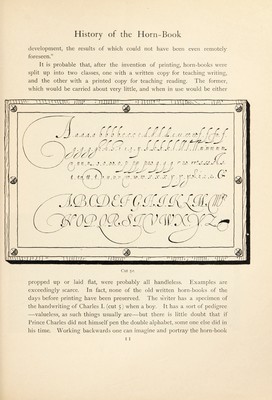 History of the Horn-Book
development, the results of which could not have been even remotely
foreseen."
It is probable that, after the invention of printing, horn-books were
split up into two classes, one with a written copy for teaching writing,
and the other with a printed copy for teaching reading. The former,
which would be carried about very little, and when in use would be either
ABCDEFGHIKLM
NOPQRSTUVWXYZ
Cut 30
propped up or laid flat, were probably all handleless. Examples are
exceedingly scarce. In fact, none of the old written horn-books of the
days before printing have been preserved. The writer has a specimen of
the handwriting of Charles I. (cut 5) when a boy. It has a sort of pedigree
—valueless, as such things usually are—but there is little doubt that if
Prince Charles did not himself pen the double alphabet, some one else did in
his time. Working backwards one can imagine and portray the horn-book
11